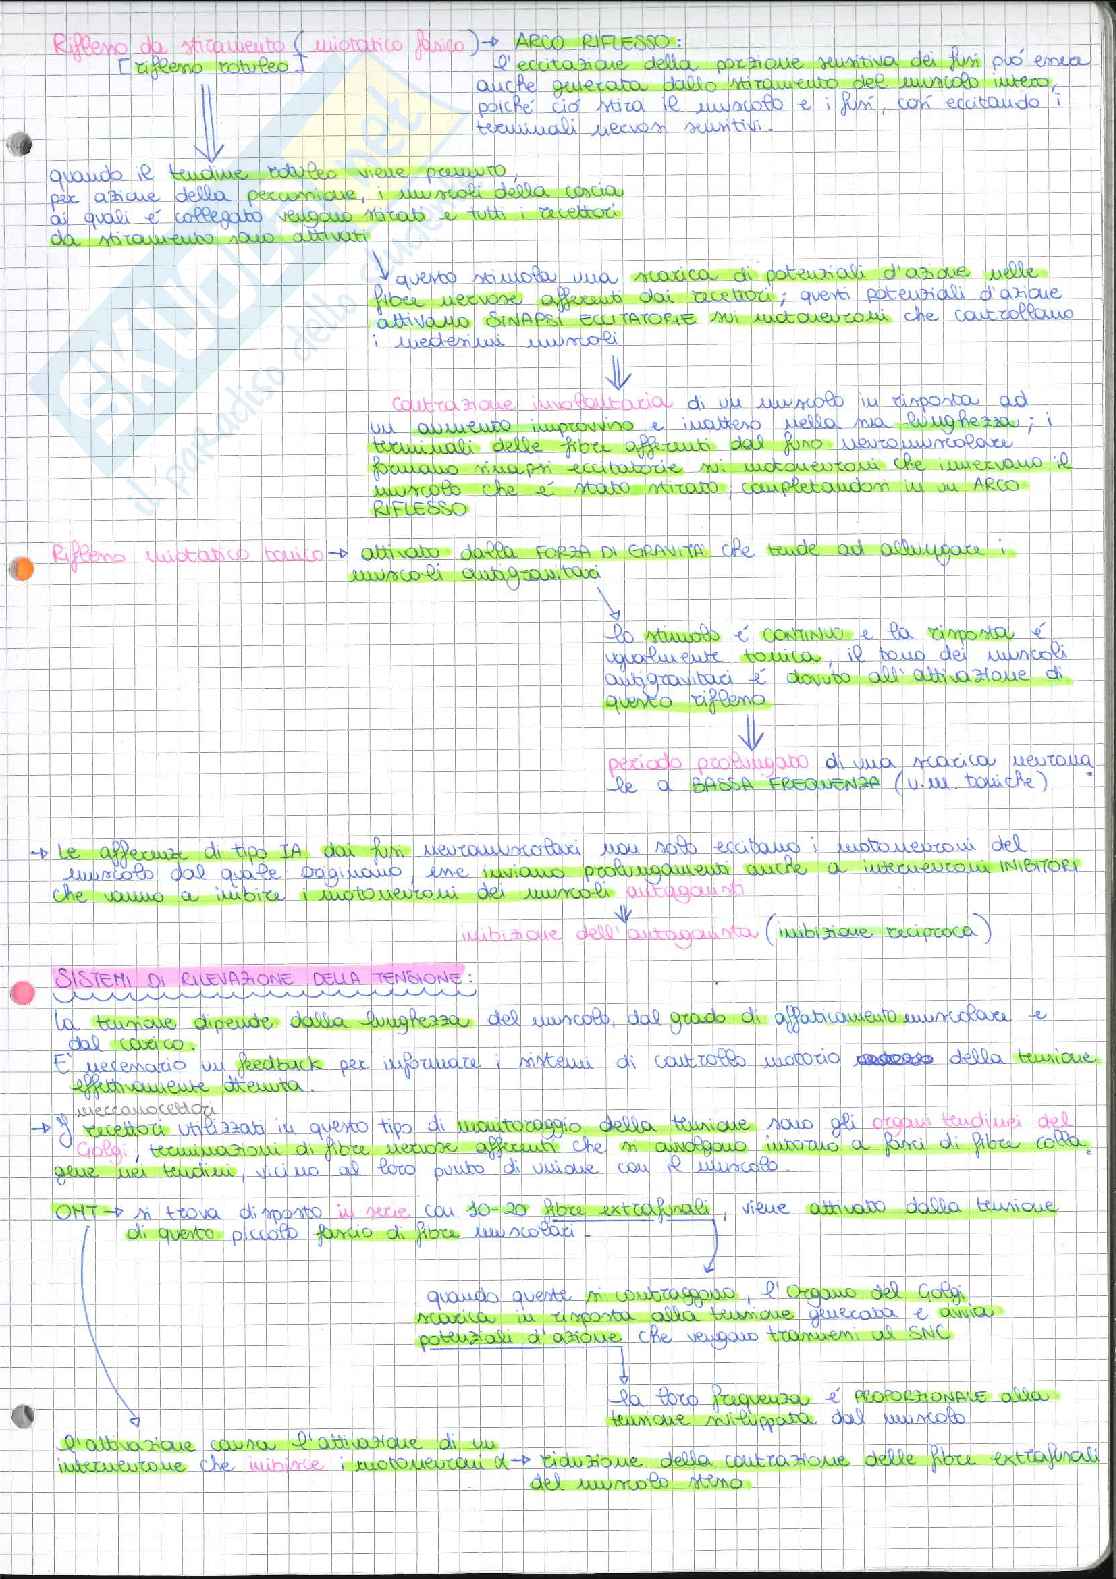 Riflesso da stiramento (miotatico fasico) → ARCO RIFLESSO:
[riflesso rotuleo]
l'eccitazione della porzione sensitiva dei fusi può essere
anche generata dallo stiramento del muscolo intero,
poiché ciò stira il muscolo e i fusi, così eccitando i
terminali nervosi sensitivi.
quando il tendine rotuleo viene percosso,
per azione della percussione, i muscoli della coscia
ai quali é collegato vengono stirati e tutti i recettori
da stiramento sono attivati
questo stimola una scarica di potenziali d'azione nelle
fibre nervose afferenti dai recettori; questi potenziali d'azione
attivano SINAPSI ECCITATORIE sui motoneuroni che controllano
i medesimi muscoli
contrazione involontaria di un muscolo in risposta ad
un aumento improvviso e inatteso nella sua lunghezza; i
terminali delle fibre afferenti dal fuso neuromuscolare
formano sinapsi eccitatorie sui motoneuroni che innervano il
muscolo che é stato stirato, completandosi in un ARCO
RIFLESSO
Riflesso miotatico tonico → attivato dalla FORZA DI GRAVITÀ che tende ad allungare i
muscoli antigravitari
lo stimolo é CONTINUO e la risposta é
ugualmente tonica, il tono dei muscoli
antigravitari é dovuto all'attivazione di
questo riflesso
periodo prolungato di una scarica neurona
le a BASSA FREQUENZA (u.m. toniche)
→ Le afferenze di tipo IA dai fusi neuromuscolari non solo eccitano i motoneuroni del
muscolo dal quale originano, esse inviano prolungamenti anche a interneuroni INIBITORI
che vanno a inibire i motoneuroni dei muscoli antagonisti
inibizione dell'antagonista (inibizione reciproca)
SISTEMI DI RILEVAZIONE DELLA TENSIONE:
La tensione dipende dalla lunghezza del muscolo, dal grado di affaticamento muscolare e
dal carico.
E' necessario un feedback per informare i sistemi di controllo motorio della tensione
effettivamente ottenuta.
meccanocettori
→ I recettori utilizzati in questo tipo di monitoraggio della tensione sono gli organi tendinei del
Golgi, terminazioni di fibre nervose afferenti che si avvolgono intorno a fasci di fibre colla
gene nei tendini, vicino al loro punto di unione con il muscolo.
OMT → si trova disposto in serie con 10-20 fibre extrafusali, viene attivato dalla tensione
di questo piccolo fascio di fibre muscolari.
quando queste si contraggono, l'Organo del Golgi
scarica in risposta alla tensione generata e avvia
potenziali d'azione che vengono trasmessi al SNC
la loro frequenza é PROPORZIONALE alla
tensione sviluppata dal muscolo
l'attivazione causa l'attivazione di un
interneurone che inibisce i motoneuroni α → riduzione della contrazione delle fibre extrafusali
del muscolo stesso
SKUOLA.net
il paradiso dello studente